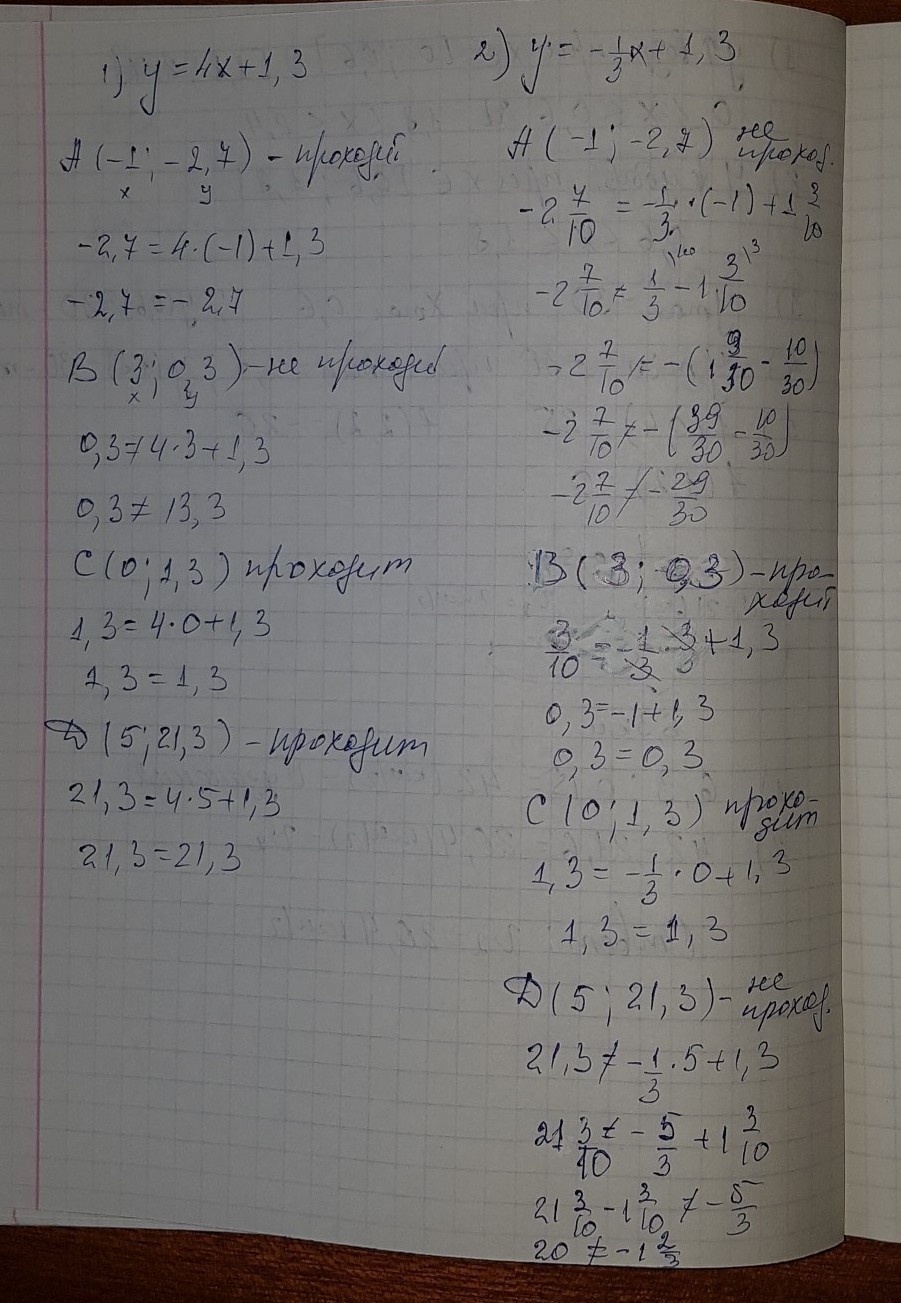 1) y = 4x + 1,3
A (-1 ; -2,7) - проходит
x y
-2,7 = 4·(-1) + 1,3
-2,7 = -2,7
B (3 ; 0,3) - не проходит
x y
0,3 ≠ 4·3 + 1,3
0,3 ≠ 13,3
C (0 ; 1,3) проходит
1,3 = 4·0 + 1,3
1,3 = 1,3
D (5 ; 21,3) - проходит
21,3 = 4·5 + 1,3
21,3 = 21,3
2) y = -1/3 x + 1,3
A (-1 ; -2,7) не
проход.
-2 7/10 = -1/3 · (-1) + 1 3/10
-2 7/10 ≠ 1/3 \10 - 1 3/10 \3
-2 7/10 ≠ -(1 9/30 - 10/30)
-2 7/10 ≠ -(39/30 - 10/30)
-2 7/10 ≠ -29/30
B (3 ; 0,3) - про-
ходит
3/10 = -1/3 · 3 + 1,3
0,3 = -1 + 1,3
0,3 = 0,3
C (0 ; 1,3) прохо-
дит
1,3 = -1/3 · 0 + 1,3
1,3 = 1,3
D (5 ; 21,3) - не
проход.
21,3 ≠ -1/3 · 5 + 1,3
21 3/10 ≠ -5/3 + 1 3/10
21 3/10 - 1 3/10 ≠ -5/3
20 ≠ -1 2/3